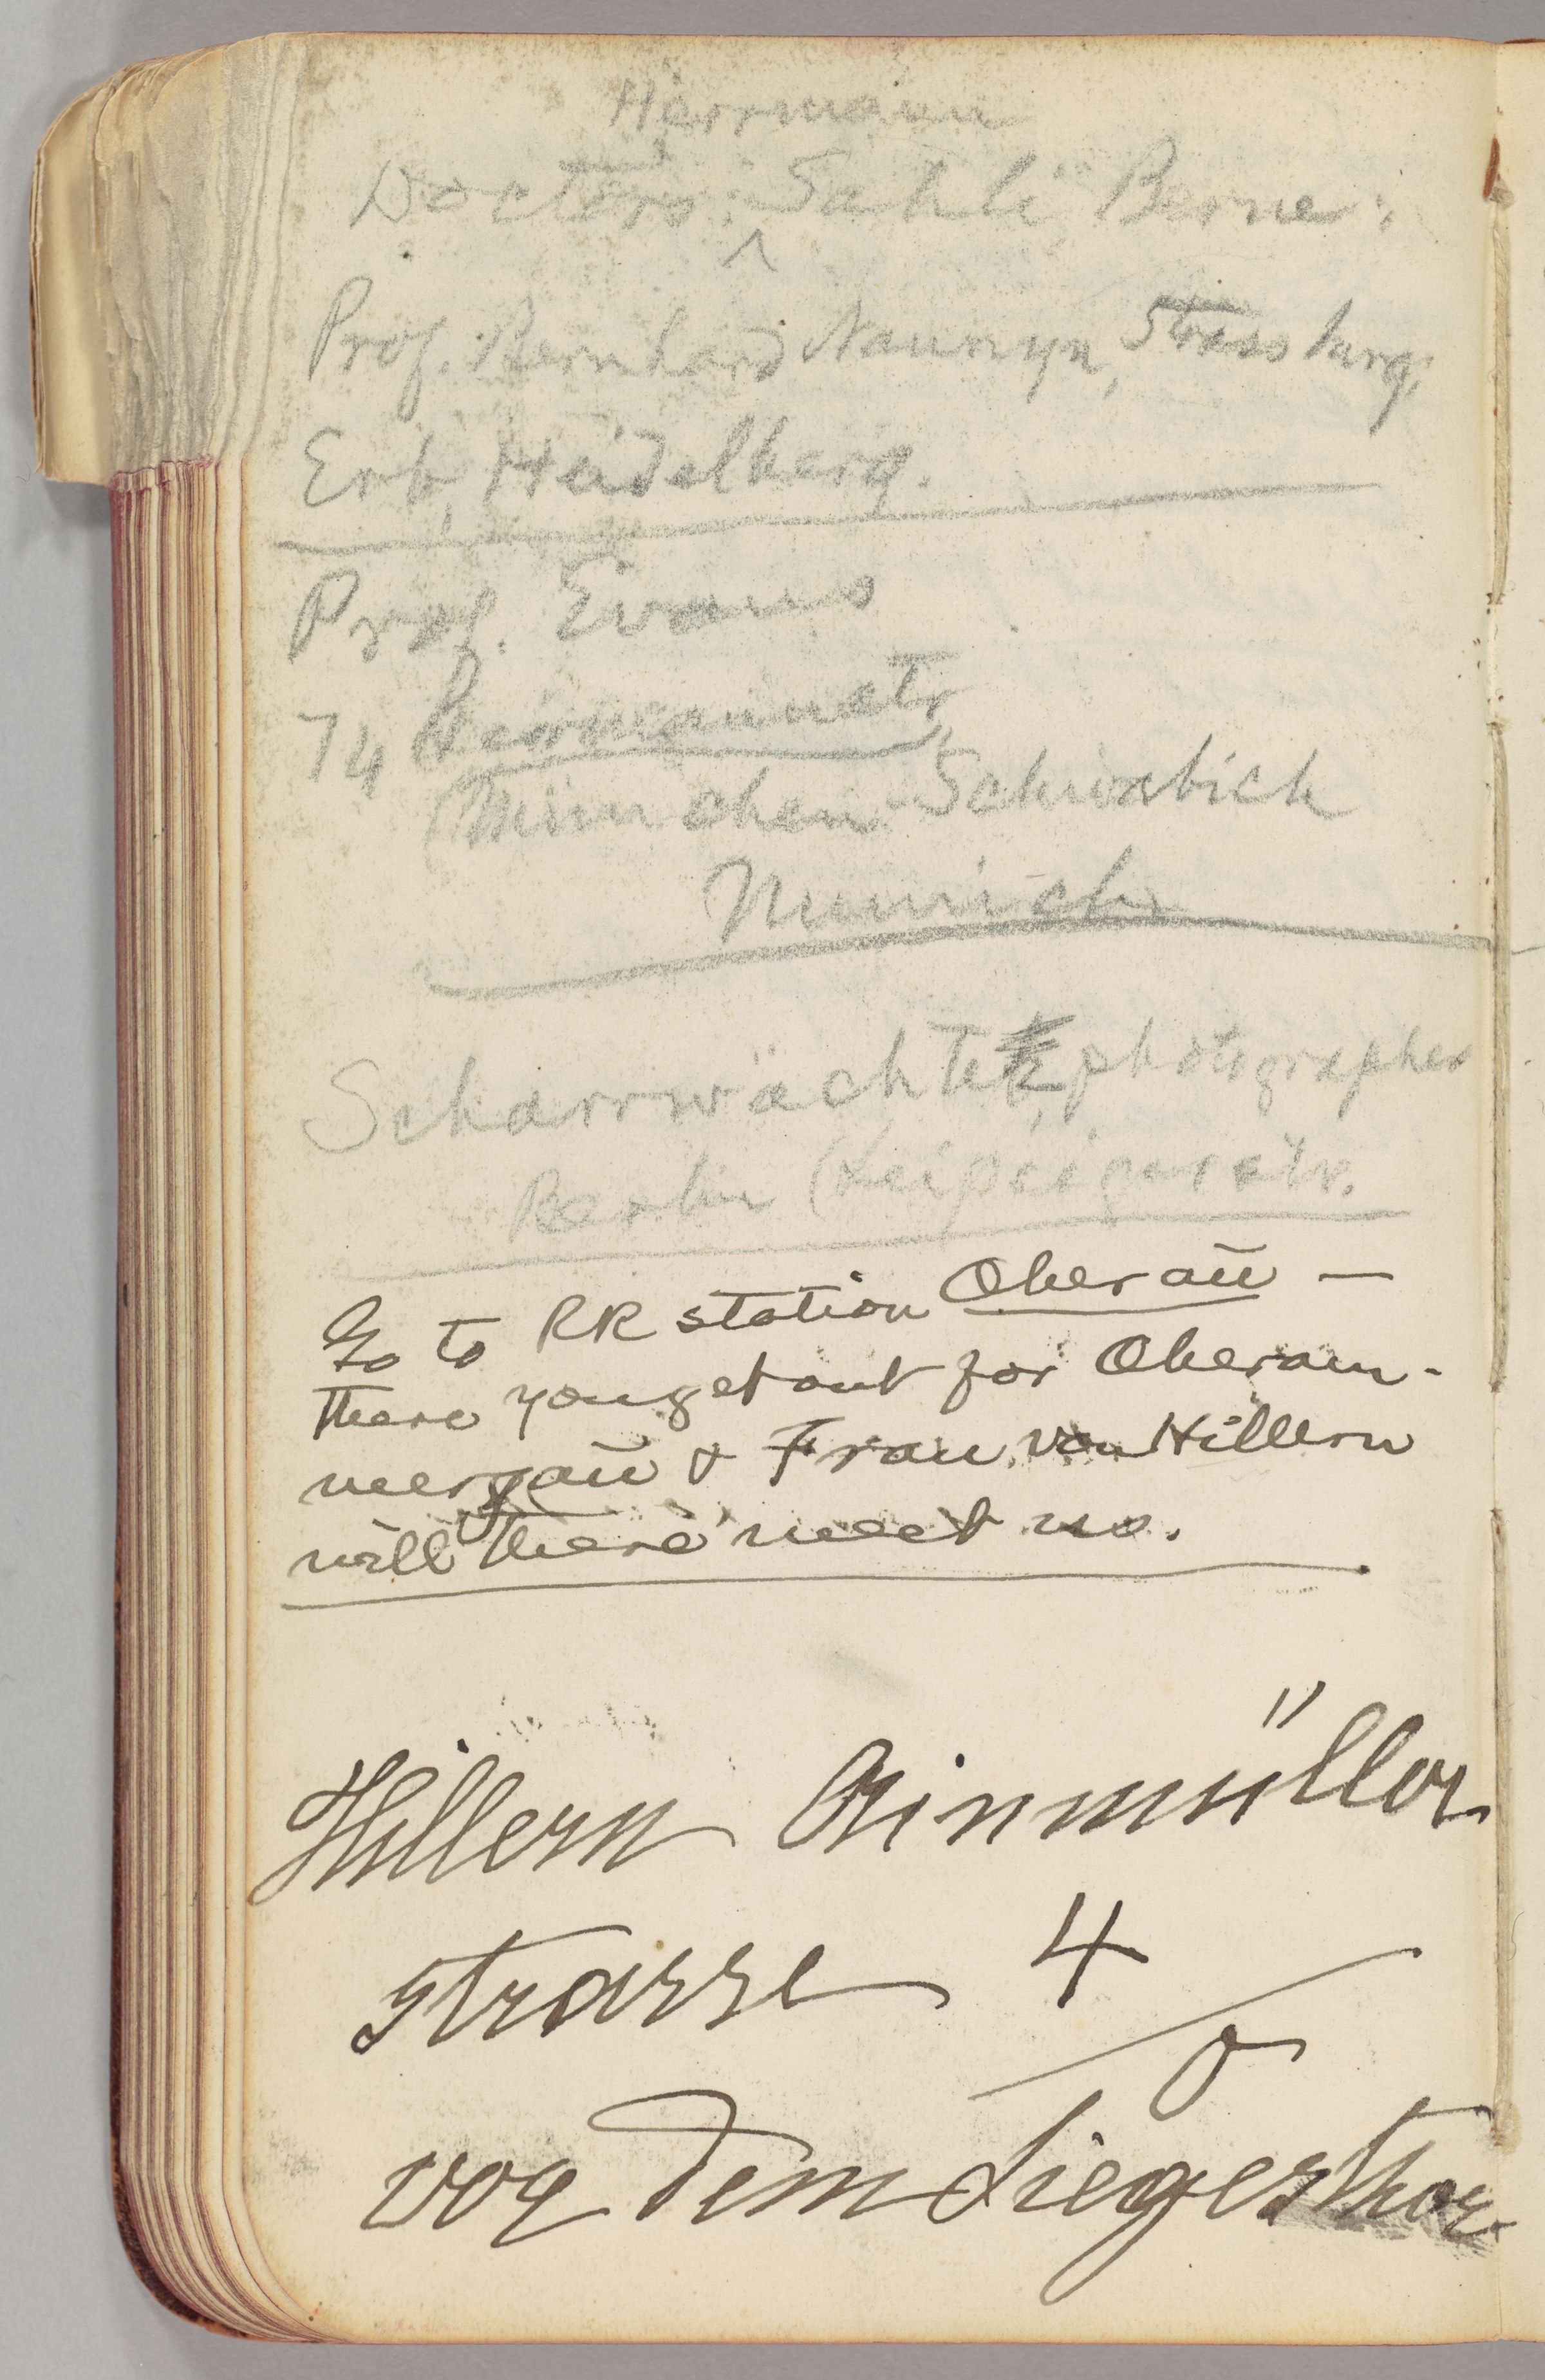 Herrmann
Doctors: ^ Sahli, Berne;
Prof. Bernhard Naunyn, Strassburg;
Erb, Heidelberg.
Prof. Evans
74 Herrmannstr
(Munchen-Schwabich
Munich
Scharrwächter, photographer
Berlin (Leipzigerstr.
Go to RR station Oberaū —
There you get out for Oberam-
mergaū & Frau von Hillern
will there meet us.
Hillern Ainmüller
strasse 4
0
vor dem Siegesthor